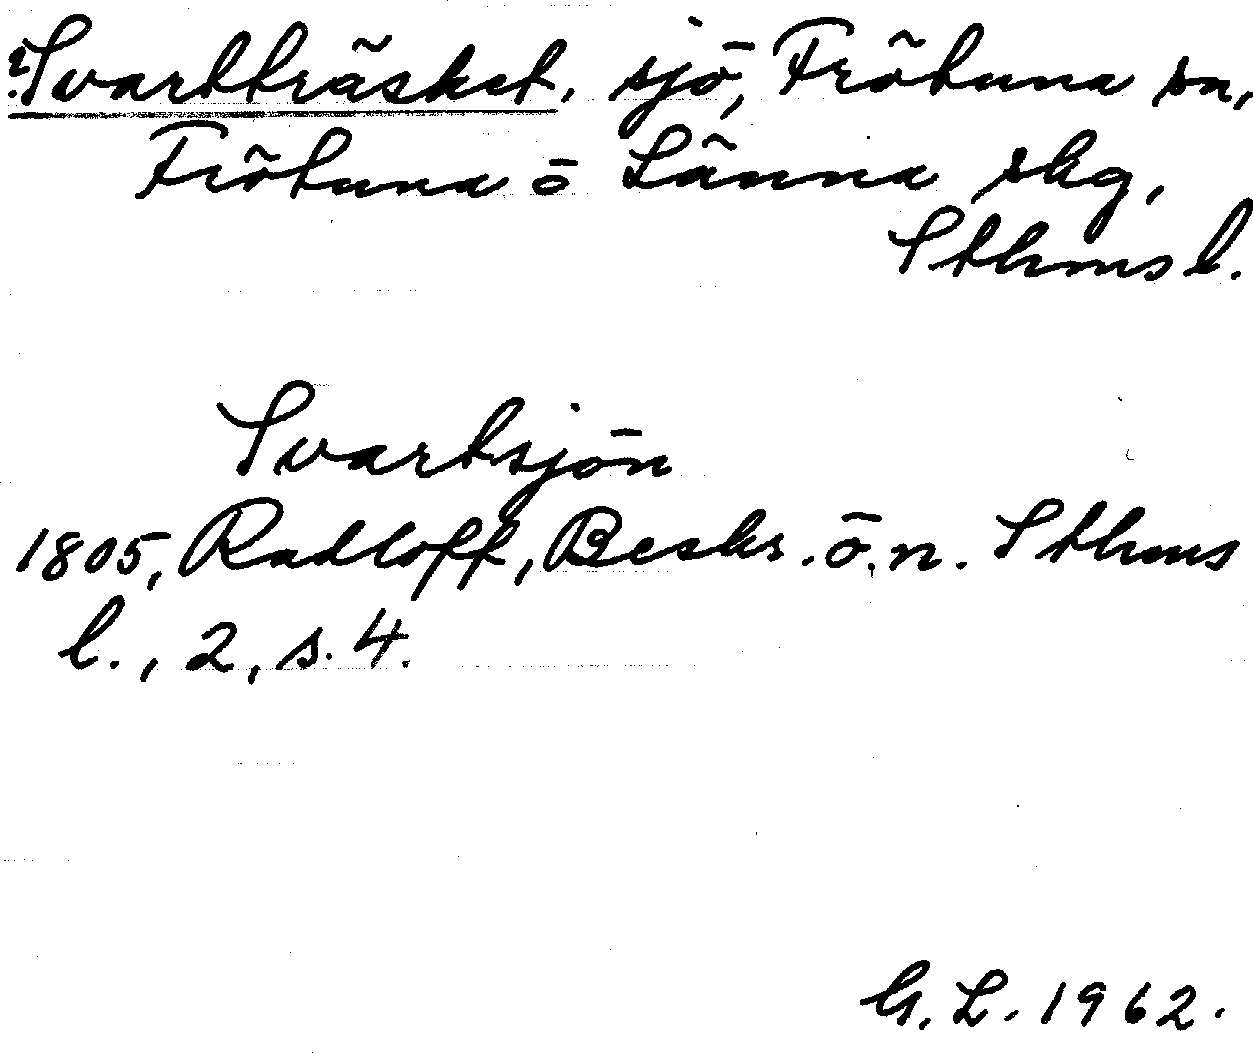 ?Svartträsket, sjö, Frötuna sn,
Frötuna o Länna skg,
Sthms l.
Svartsjön
1805, Radloff, Beskr. ö. n. Sthms
l., 2, s. 4.
G. L. 1962.